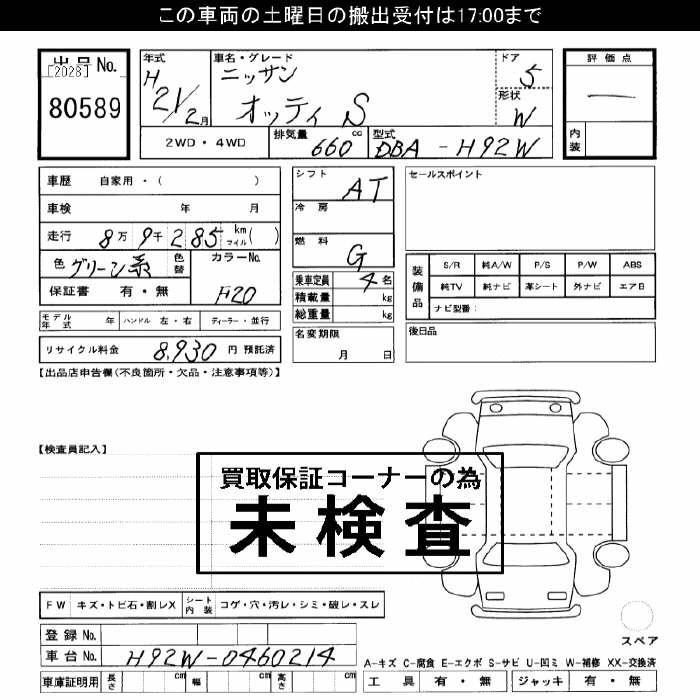 この車両の土曜日の搬出受付は17:00まで
出品No.
[2028]
80589
年式
H
21/2月
車名・グレード
ニッサン
オッティ S
ドア
5
形状
W
評価点
—
内装
2WD・4WD
排気量 660 cc
型式 DBA-H92W
車歴 自家用・( )
車検 年 月
走行 8万9千285 km マイル( )
色 グリーン系
色替
カラーNo.
H20
保証書 有・無
モデル年式 年 ハンドル 左・右 ディーラー・並行
リサイクル料金 8,930 円 預託済
シフト
AT
冷房
燃料
G
乗車定員 4名
積載量 kg
総重量 kg
名変期限
月 日
セールスポイント
装備品
S/R 純A/W P/S P/W ABS
純TV 純ナビ 革シート 外ナビ エアB
ナビ型番:
後日品
【出品店申告欄(不良箇所・欠品・注意事項等)】
【検査員記入】
買取保証コーナーの為
未検査
FW キズ・トビ石・割レX
シート内装 コゲ・穴・汚レ・シミ・破レ・スレ
登録No.
車台No. H92W-0460214
車庫証明用 長さ cm 幅 cm 高さ cm
スペア
A-キズ C-腐食 E-エクボ S-サビ U-凹ミ W-補修 XX-交換済
工具 有・無 ジャッキ 有・無